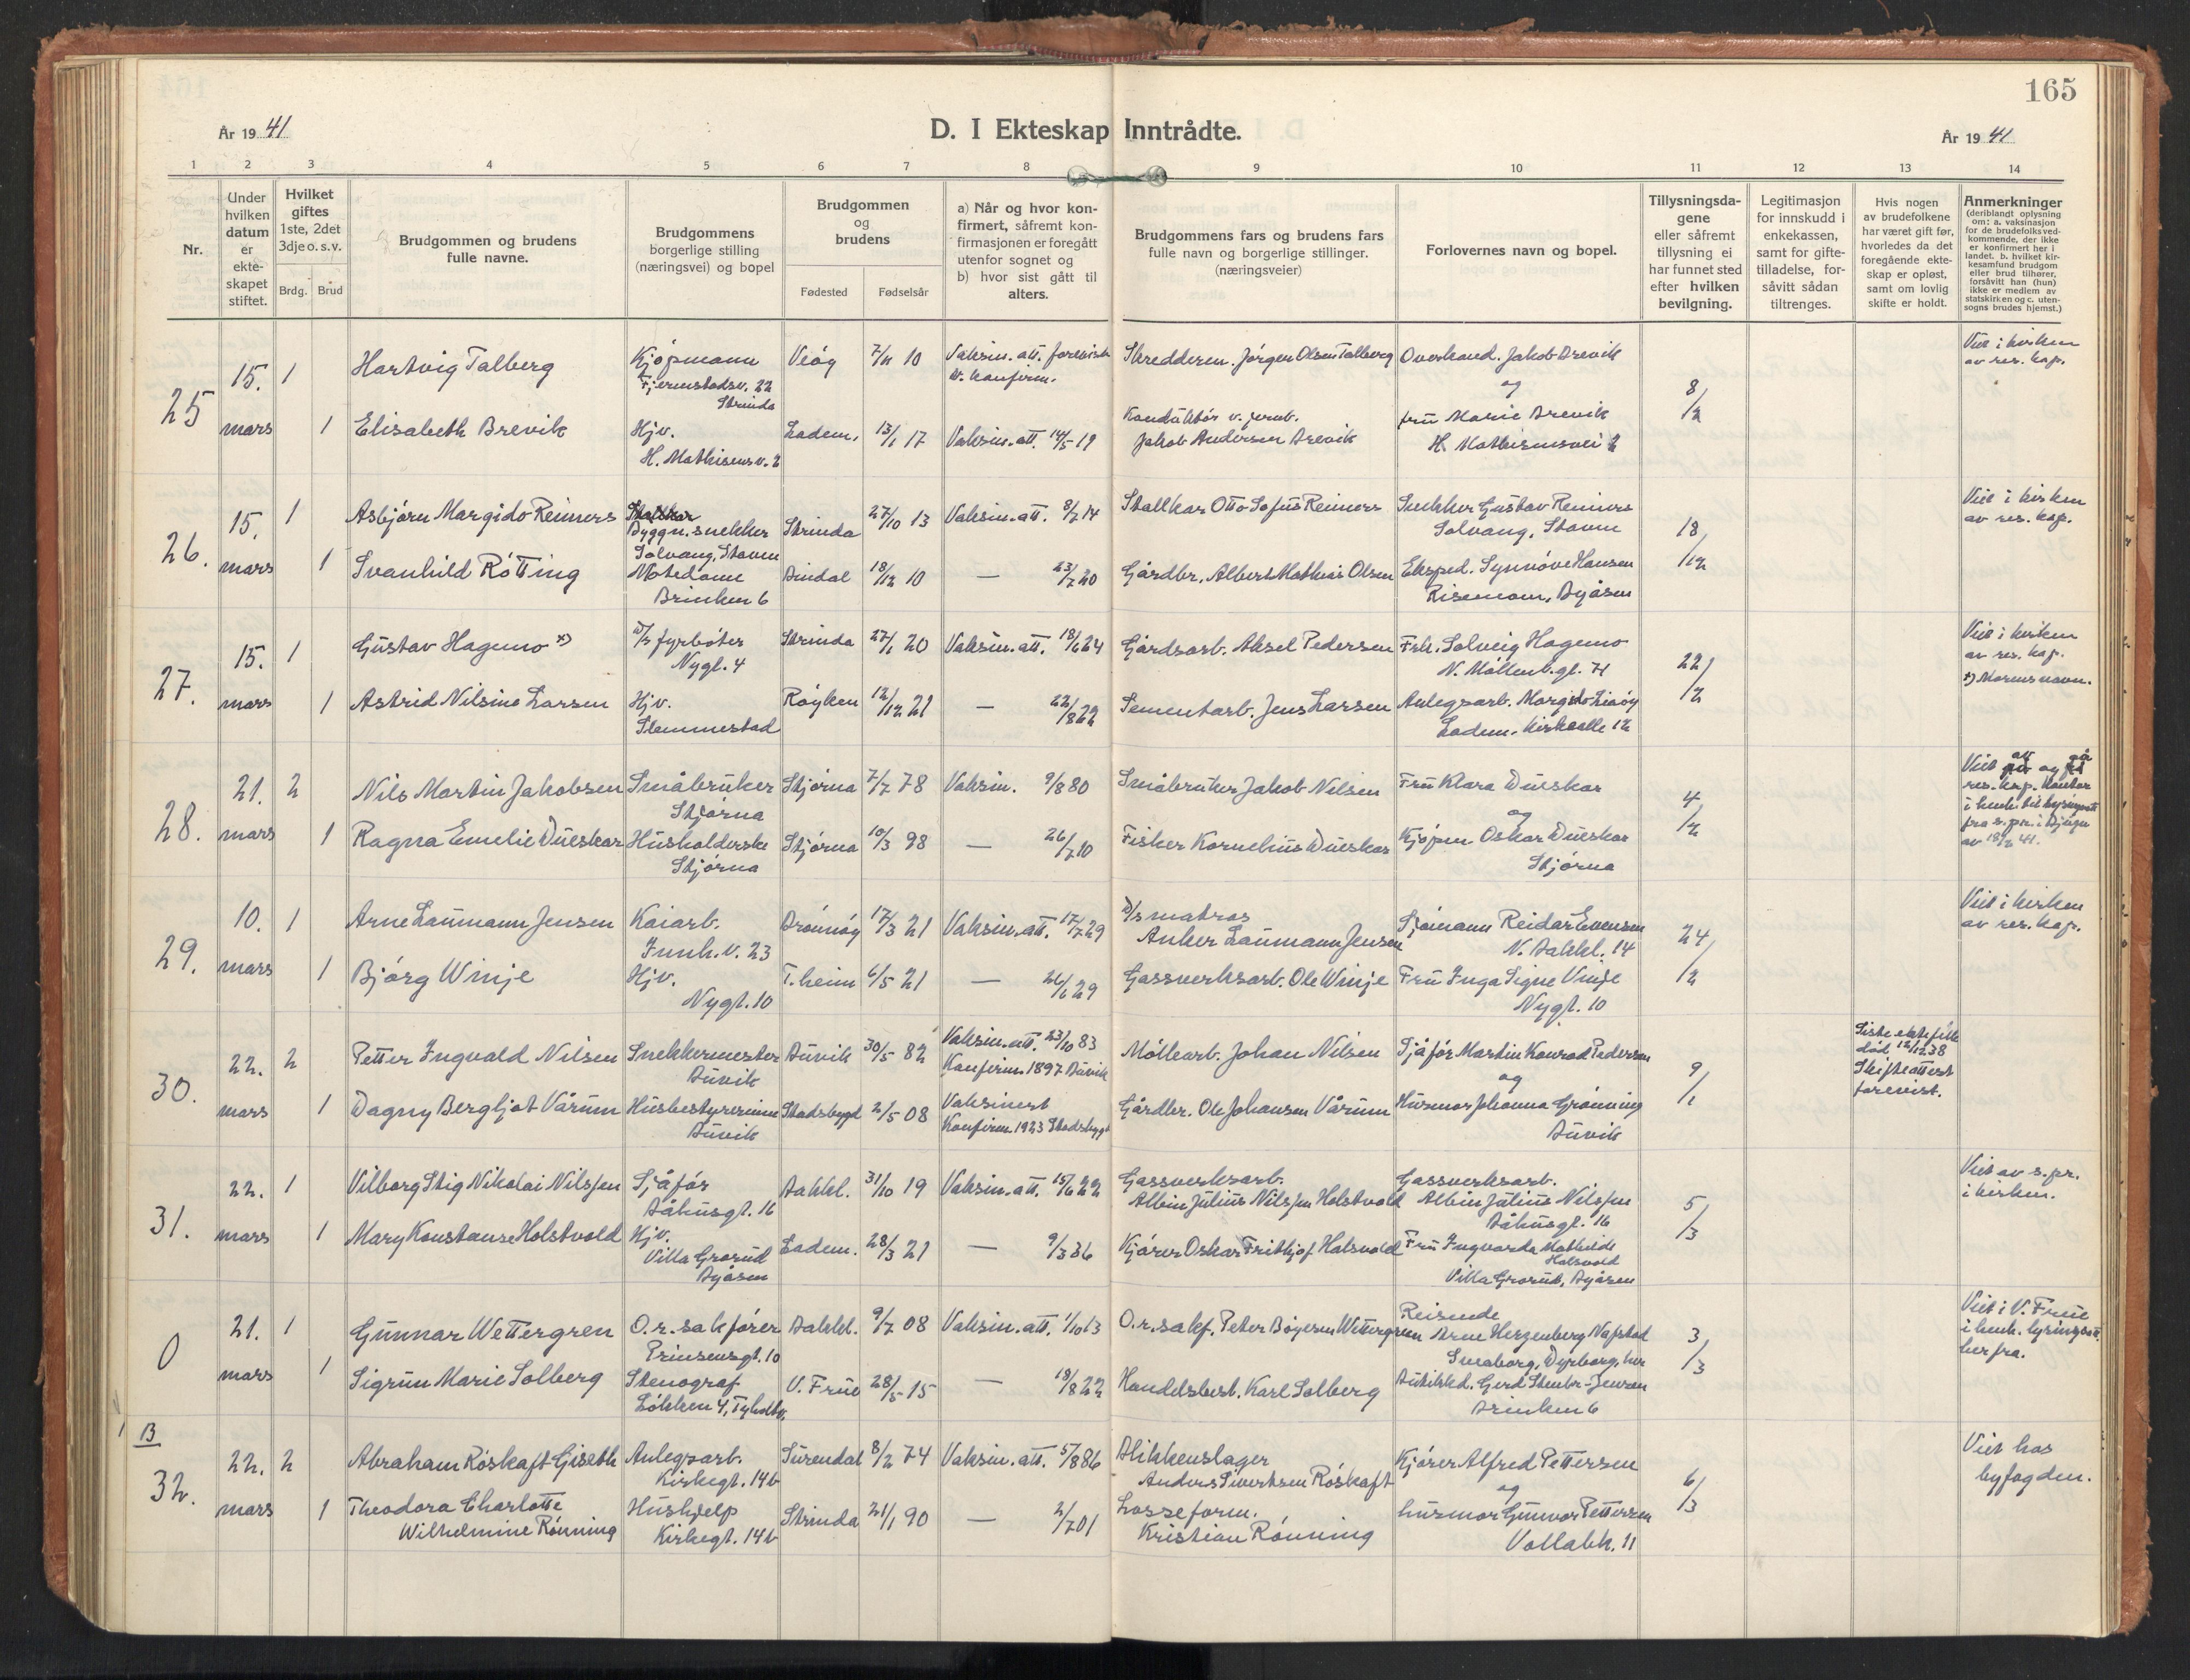 165
År 19 41
D. I Ekteskap Inntrådte.
År 19 41
1 2 3 4 5 6 7 8 9 10 11 12 13 14
Nr.
Under hvilken datum er ekte-skapet stiftet.
Hvilket giftes 1ste, 2det 3dje o. s. v.
Brdg. Brud
Brudgommen og brudens fulle navne.
Brudgommens borgerlige stilling (næringsvei) og bopel
Brudgommen og brudens
Fødested Fødselsår
a) Når og hvor kon-firmert, såfremt kon-firmasjonen er foregått utenfor sognet og b) hvor sist gått til alters.
Brudgommens fars og brudens fars fulle navn og borgerlige stillinger. (næringsveier)
Forlovernes navn og bopel.
Tillysningsda-gene eller såfremt tillysning ei har funnet sted efter hvilken bevilgning.
Legitimasjon for innskudd i enkekassen, samt for gifte-tilladelse, for-såvitt sådan tiltrenges.
Hvis nogen av brudefolkene har været gift før, hvorledes da det foregående ekte-skap er opløst, samt om lovlig skifte er holdt.
Anmerkninger (deriblandt oplysning om: a. vaksinasjon for de brudefolksved-kommende, der ikke er konfirmert her i landet. b. hvilket kir-kesamfund brudgom eller brud tilhører, forsåvitt han (hun) ikke er medlem av statskirken og c. uten-sogns brudes hjemst.)
25 15. mars 1 Hartvig Talberg Kjøpmann Fjermstadsv. 22 Strinda Veøy 7/11 10 Vaksin. att. forevist Skredderm. Jørgen Olsen Talberg Overkond. Jakob Brevik og 8/2 Viet i kirken av res. kap.
1 Elisabeth Brevik Hjv. H. Mathisensv. 2 Ladem. 13/1 17 Vaksin. att. 14/5 19 Konduktør v. jernb. Jakob Andersen Brevik fru Marie Brevik H. Mathisensvei 2
26. 15. mars 1 Asbjørn Margido Reiners Byggn. snekker Solvang, Stavne Strinda 27/10 13 Vaksin. att. 8/7 14 Stallkar Otto Sofus Reiners Snekker Gustav Reiners Solvang, Stavne 18/12 Viet i kirken av res. kap.
1 Svanhild Røtting Motedame Brinken 6 Bindal 18/12 10 — 23/7 20 Gårdbr. Albert Mathias Olsen Eksped. Synnøve Hansen Risemoen, Byåsen
27. 15. mars 1 Gustav Hagemo x) D/S fyrbøter Nygt. 4 Strinda 27/1 20 Vaksin. att. 18/6 24 Gårdsarb. Aksel Pedersen Frk. Solveig Hagemo N. Møllenb. gt. 71 22/2 Viet i kirken av res. kap. x) Morens navn.
1 Astrid Nilsine Larsen Hjv. Slemmestad Røyken 12/12 21 — 22/8 22 Sementarb. Jens Larsen Anlegsarb. Margido Ladem. kirkealle 12
28. 21. mars 2 Nils Martin Jakobsen Småbruker Stjørna Stjørna 7/7 78 Vaksin. 9/8 80 Småbruker Jakob Nilsen Fru Klara Dueskar og 4/2 Viet av og på res. kap. kontor i henh. til lysingsatt. fra s.pr. i av 18/2 41.
1 Ragna Emelie Dueskar Husholderske Stjørna Stjørna 10/3 98 — 26/7 10 Fisker Kornelius Dueskar Kjøpm. Oskar Dueskar Stjørna
29. 10. mars 1 Arne Laumann Jensen Kaiarb. Innh. v. 23 Brønnøy 17/3 21 Vaksin. att. 17/7 29 D/S matros Anker Laumann Jensen Sjømann Reidar Evensen N. Bakkl. 14 24/2 Viet i kirken av res. kap.
1 Bjørg Winje Hjv. Nygt. 10 T.heim 6/5 21 — 26/6 29 Gassverksarb. Ole Winje Fru Inga Signe Vinje Nygt. 10
30. 22. mars 2 Petter Ingvald Nilsen Snekkermester Buvik Buvik 30/5 82 Vaksin. att. 23/10 83 Konfirm. 1897 Buvik Møllearb. Johan Nilsen Sjåfør Martin Konrad Pedersen og 9/1 Siste ektefelle død 12/12 38 Skifteattest forevist.
1 Dagny Bergljot Vårum Husbestyrerinne Buvik Stadsbygd 2/5 08 Vaksinert Konfirm. 1923 Stadsbygd Gårdbr. Ole Johansen Vårum Husmor Johanna Grønning Buvik
31. 22. mars 1 Vilborg Stig Nikolai Nilssen Sjåfør Båhusgt. 16 Bakkl. 31/10 19 Vaksin. att. 15/6 22 Gassverksarb. Albin Julius Nilssen Holstvold Gassverksarb. Albin Julius Nilssen Båhusgt. 16 5/3 Viet av s.pr. i kirken.
1 Mary Konstanse Holstvold Hjv. Villa Grorud Byåsen Ladem. 28/3 21 — 9/3 36 Kjører Oskar Frithjof Holsvold Fru Ingvarda Mathilde Holsvold Villa Grorud, Byåsen
0 21. mars 1 Gunnar Wettergren O.r.sakfører Prinsensgt. 10 Bakkl. 9/7 08 Vaksin. att. 1/10 13 O.r.sakf. Peter Bøyesen Wettergreen Reisende Arne Herzenberg Nafstad Smaborg, Dyrborg, her 3/3 Viet i V. Frue i henh. lysingsatt. herfra.
1 Sigrun Marie Solberg Stenograf Løkken 4, Tyholtv. V. Frue 28/5 15 — 18/8 22 Handelsbest. Karl Solberg Butikkd. Gerd Stenbr-Jensen Brinken 6
B
32. 22. mars 2 Abraham Røskaft Giseth Anlegsarb. Kirkegt. 14b Surendal 8/2 74 Vaksin. att. 5/8 86 Blikkenslager Anders Sivertsen Røskaft Kjører Alfred Pettersen og 6/3 Viet hos byfogden.
1 Theodora Charlotte Wilhelmine Rønning Hushjelp Kirkegt. 14b Strinda 21/1 90 — 2/7 01 Losseform. Kristian Rønning husmor Gunvor Pettersen Vollabk. 11